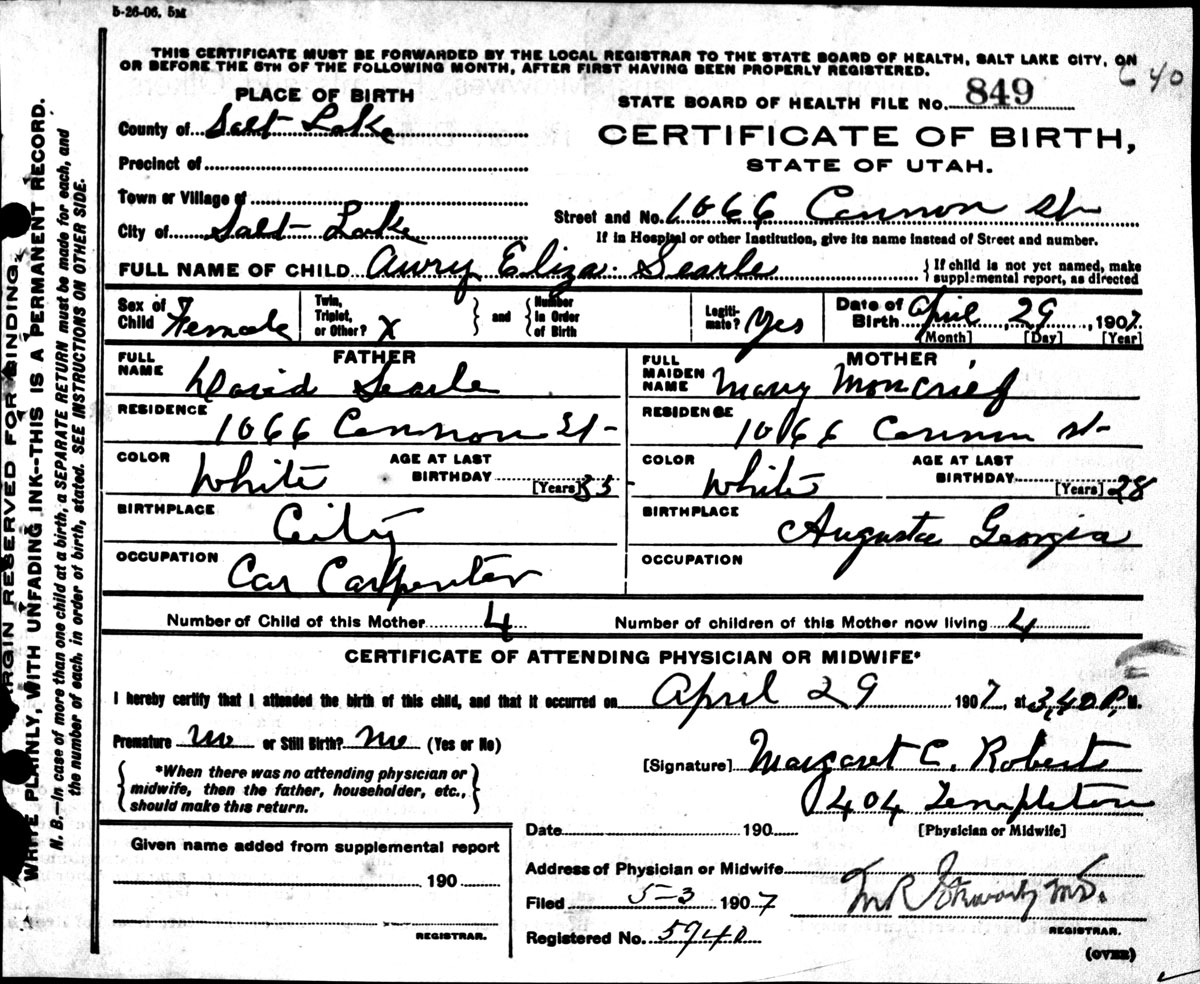 5-26-06. 5M
THIS CERTIFICATE MUST BE FORWARDED BY THE LOCAL REGISTRAR TO THE STATE BOARD OF HEALTH, SALT LAKE CITY, ON
OR BEFORE THE 5TH OF THE FOLLOWING MONTH, AFTER FIRST HAVING BEEN PROPERLY REGISTERED.
640
PLACE OF BIRTH
STATE BOARD OF HEALTH FILE No. 849
County of Salt Lake
CERTIFICATE OF BIRTH,
Precinct of
STATE OF UTAH.
Town or Village of
Street and No. 1066 Cannon St
City of Salt Lake
If in Hospital or other Institution, give its name instead of Street and number.
FULL NAME OF CHILD Avery Eliza Searle
{ If child is not yet named, make
supplemental report, as directed
Sex of Child Female
Twin, Triplet, or Other? X } and { Number in Order of Birth
Legitimate? Yes
Date of Birth April 29, 1907.
[Month] [Day] [Year]
FATHER
FULL NAME David Searle
RESIDENCE 1066 Cannon St-
COLOR White AGE AT LAST BIRTHDAY 35 [Years]
BIRTHPLACE City
OCCUPATION Car Carpenter
MOTHER
FULL MAIDEN NAME Mary Moncrief
RESIDENCE 1066 Cannon st-
COLOR White AGE AT LAST BIRTHDAY [Years] 28
BIRTHPLACE Augusta Georgia
OCCUPATION
Number of Child of this Mother 4 Number of children of this Mother now living 4
CERTIFICATE OF ATTENDING PHYSICIAN OR MIDWIFE*
I hereby certify that I attended the birth of this child, and that it occurred on April 29 1907, at 3,40 P. M.
Premature no or Still Birth? no (Yes or No)
[Signature] Margaret C. Roberts
{ *When there was no attending physician or
midwife, then the father, householder, etc.,
should make this return. }
404 Templeton
[Physician or Midwife]
Date 190
Given name added from supplemental report
190
REGISTRAR.
Address of Physician or Midwife
Filed 5-3 1907
M.D.
REGISTRAR.
Registered No. 5940
(OVER)
MARGIN RESERVED FOR BINDING.
WRITE PLAINLY, WITH UNFADING INK--THIS IS A PERMANENT RECORD.
N. B.—In case of more than one child at a birth, a SEPARATE RETURN must be made for each, and
the number of each, in order of birth, stated. SEE INSTRUCTIONS ON OTHER SIDE.